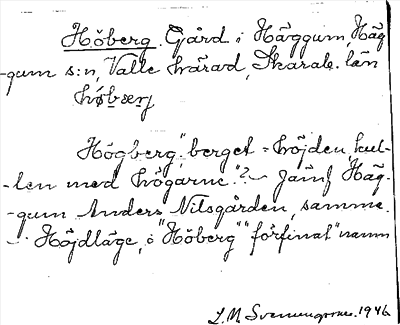 Höberg. Gård i Häggum, Häg-
-gum s:n, Valle härad, Skarab. län
høbærj
"Högberg", berget = höjden, kul-
-len med högarne"? - Jämf Häg-
-gum Anders Nilsgården, samme.
- Höjdläge, ö "Höberg" "förfinat" namn
L. M. Svenungsson. 1946